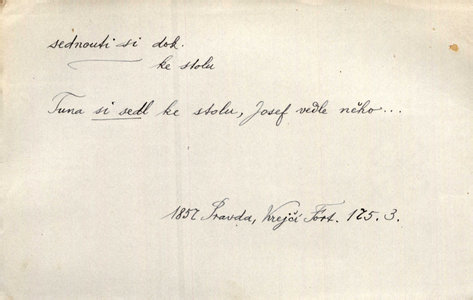 sednouti si dok.
ke stolu
Tuna si sedl ke stolu, Josef vedle něho...
1857 Pravda, Krejčí Fört. 175. 3.